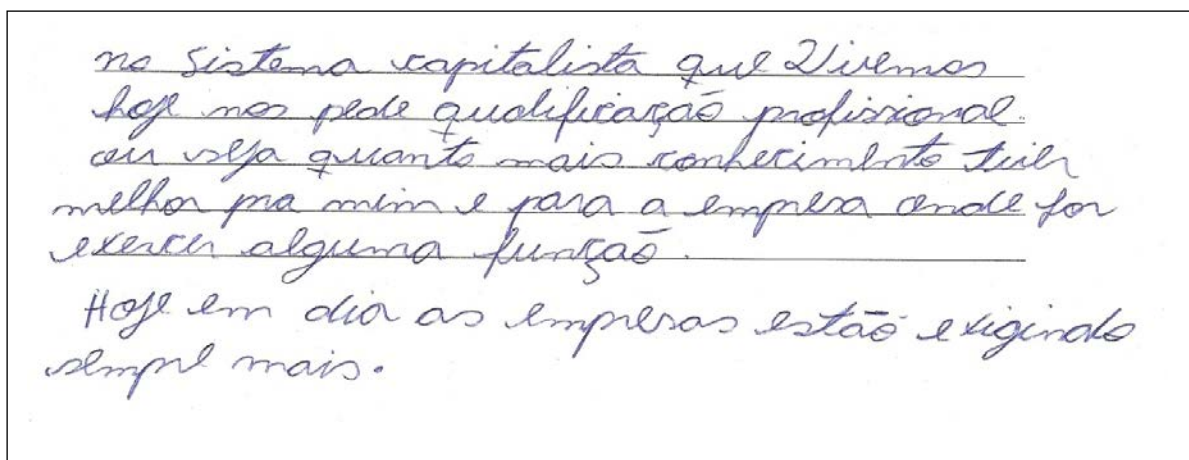 no sistema capitalista que Vivemos
hoje nos pede qualificação profissional.
ou seja quanto mais conhecimento tiver
melhor pra mim e para a empresa onde for
exercer alguma função.
Hoje em dia as empresas estão exigindo
sempre mais.